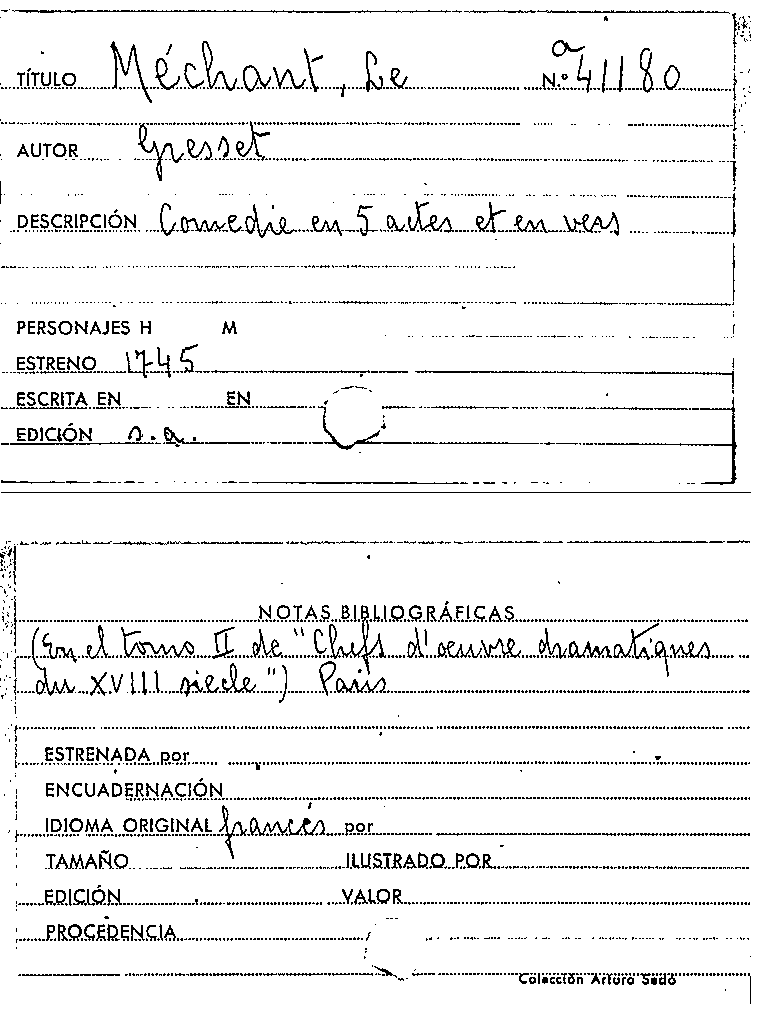 TÍTULO Méchant, Le N.º a 41180
AUTOR Gresset
DESCRIPCIÓN Comedie en 5 actes et en vers
PERSONAJES H M
ESTRENO 1745
ESCRITA EN EN
EDICIÓN s.a.
NOTAS BIBLIOGRÁFICAS
(En el tomo II de "Chefs d'oeuvre dramatiques
du XVIII siecle") Paris
ESTRENADA por
ENCUADERNACIÓN
IDIOMA ORIGINAL francés por
TAMAÑO ILUSTRADO POR
EDICIÓN VALOR
PROCEDENCIA
Colección Arturo Sedó